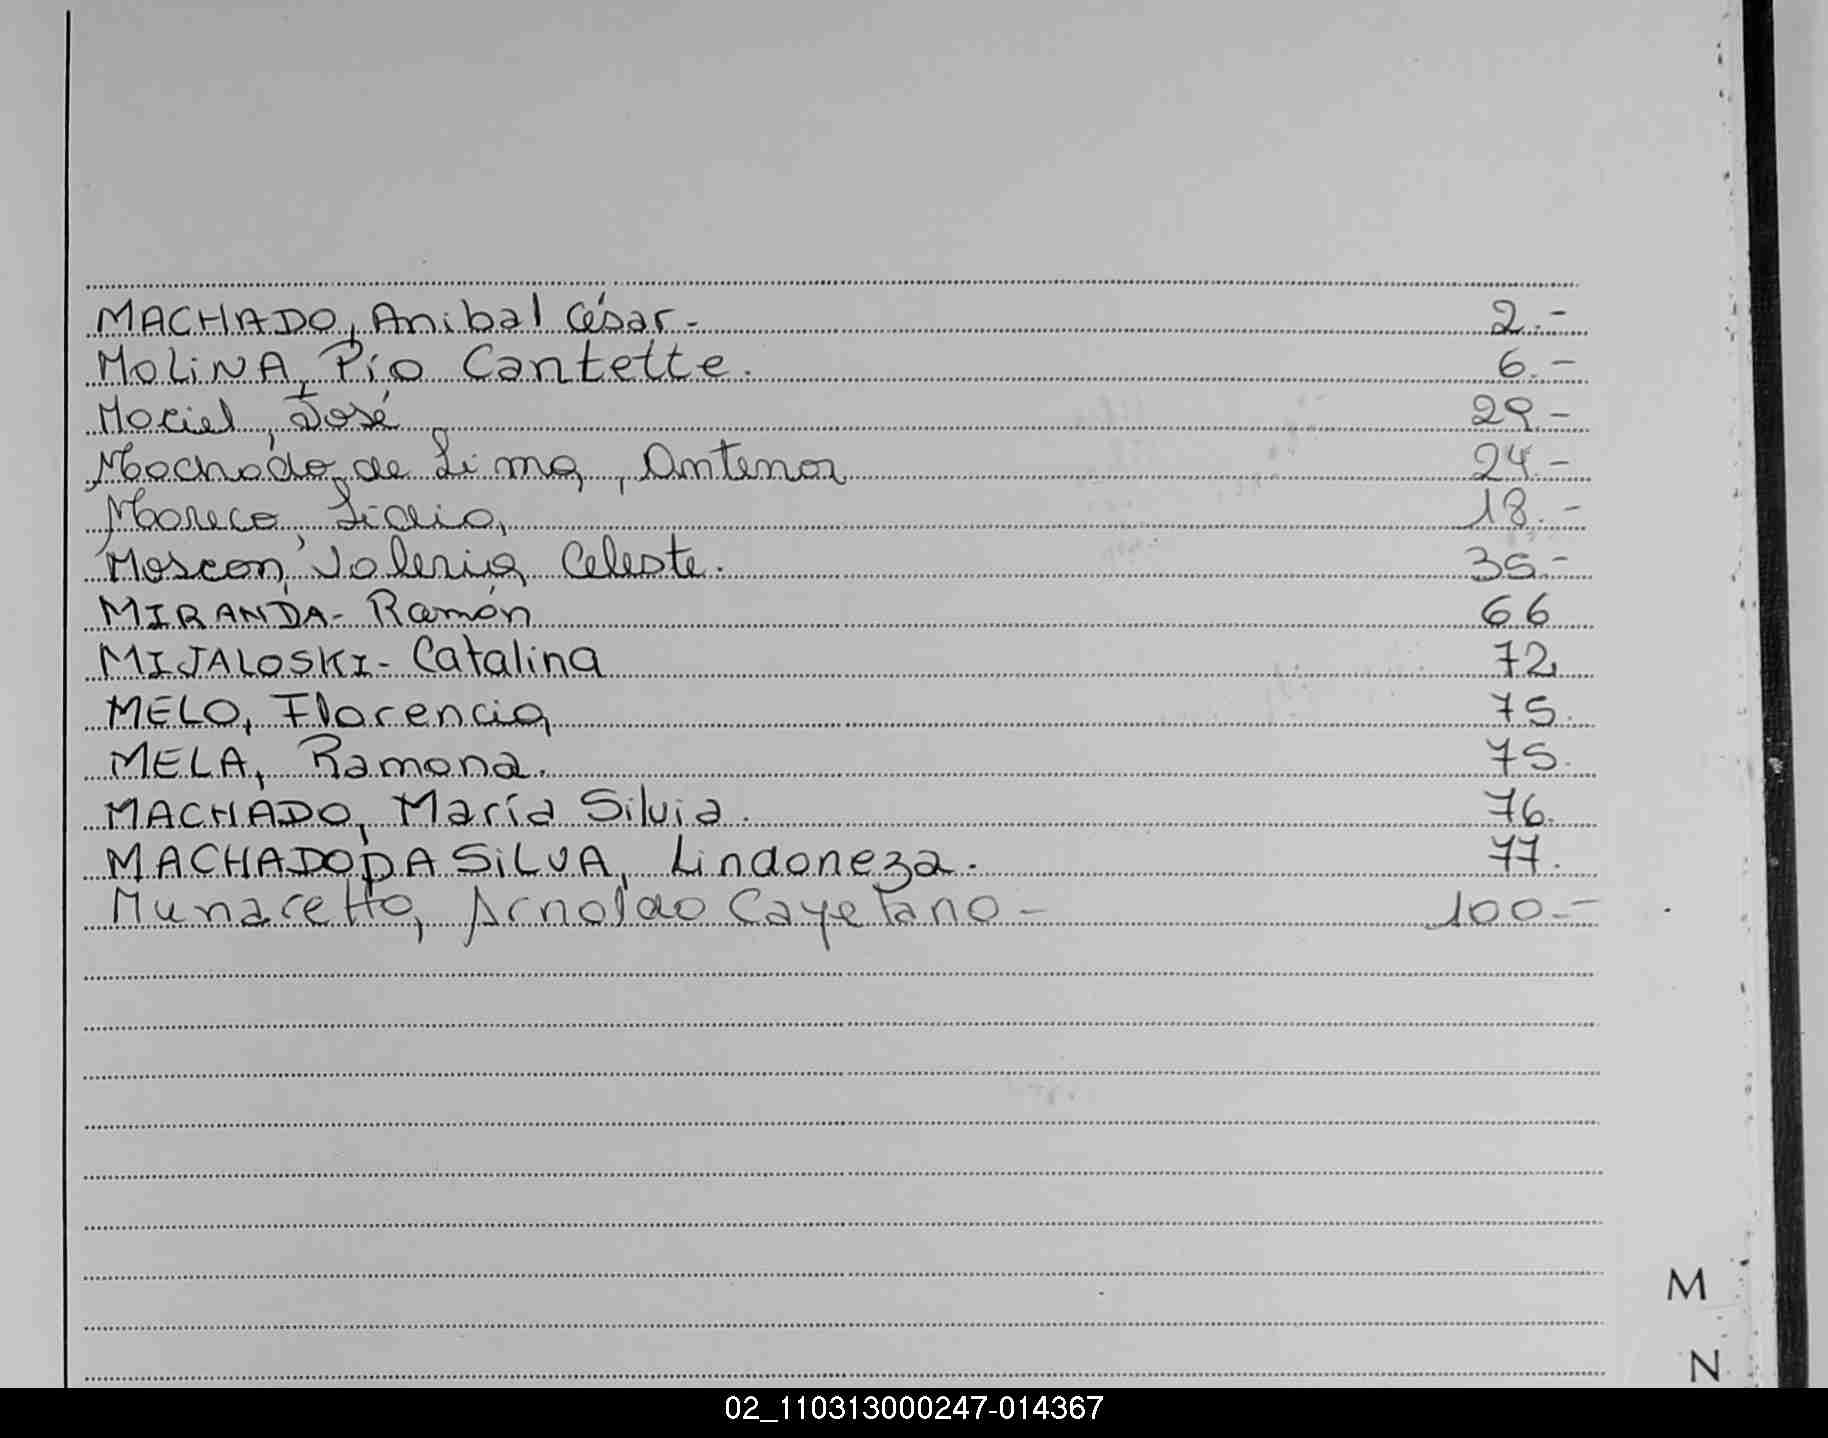 MACHADO, Anibal César.- 2.-
MOLINA, Pío Cantette. 6.-
Maciel, José 29.-
Machado de Lima, Antenor 24.-
Moreco, Lidia, 18.-
Moscon, Valeria Celeste. 35.-
MIRANDA- Ramón 66
MIJALOSKI- Catalina 72
MELO, Florencia 75.
MELA, Ramona. 75.
MACHADO, María Silvia. 76.
MACHADO DA SILVA, Lindoneza. 77.
Munaretto, Arnoldo Cayetano- 100.-
M
N
02_110313000247-014367